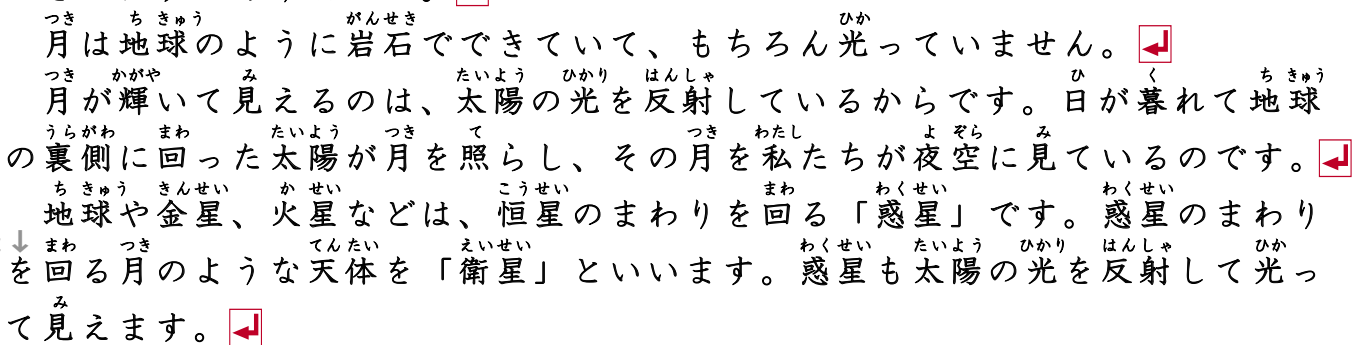 月は地球のように岩石でできていて、もちろん光っていません。
月が輝いて見えるのは、太陽の光を反射しているからです。日が暮れて地球
の裏側に回った太陽が月を照らし、その月を私たちが夜空に見ているのです。
地球や金星、火星などは、恒星のまわりを回る「惑星」です。惑星のまわり
を回る月のような天体を「衛星」といいます。惑星も太陽の光を反射して光っ
て見えます。